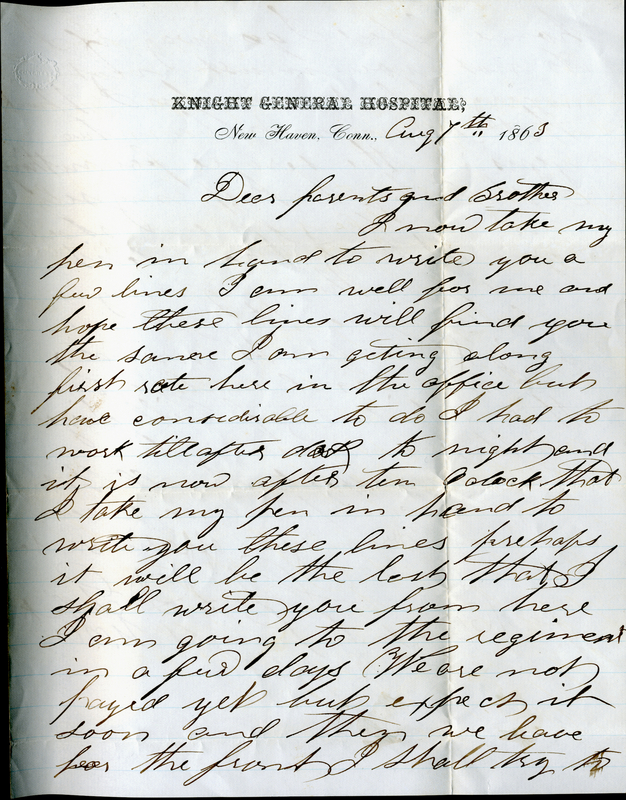 KNIGHT GENERAL HOSPITAL,
New Haven, Conn., Aug 7th 1863
Deer parents and Brother
I now take my
pen in hand to write you a
few lines I am well for me and
hope these lines will find you
the same I am geting along
first rate here in the office but
have considirable to do I had to
work till after dark to night and
it is now after ten Oclock that
I take my pen in hand to
write you these lines perhaps
it will be the last that I
shall write you from here
I am going to the regiment
in a few days We are not
payed yet but expect it
soon and then we leave
for the front I shall try to